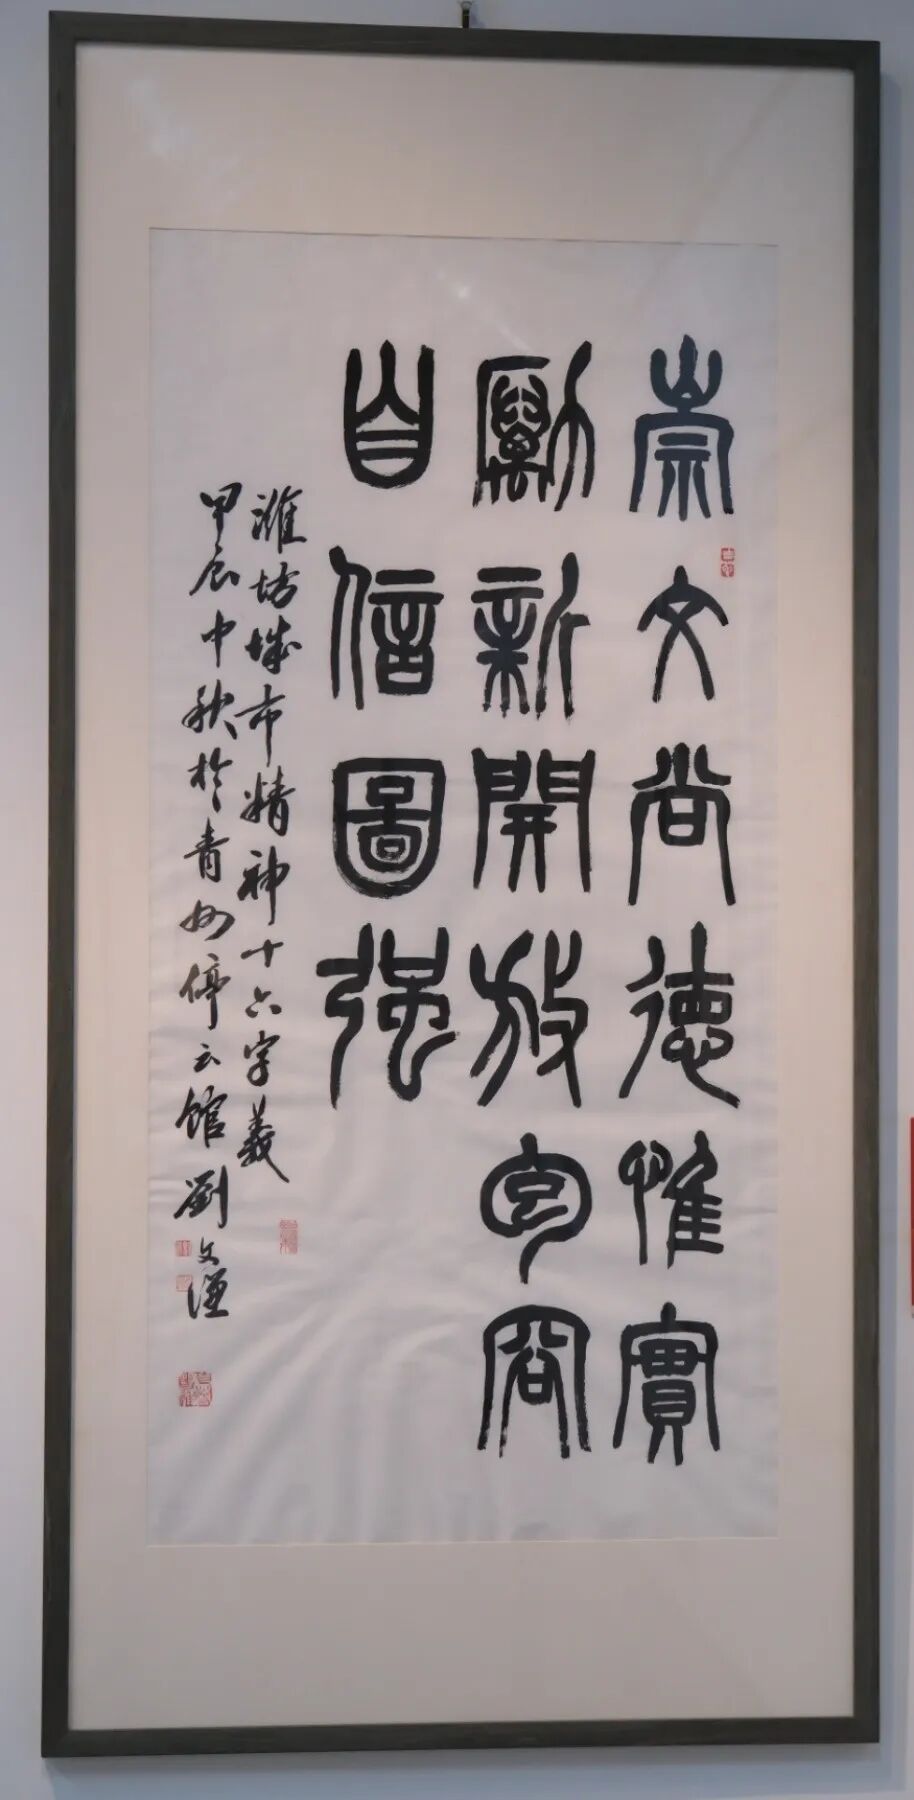 崇文尚德惟實
勵新開放包容
自信圖强
濰坊城市精神十六字義
甲辰中秋於青州停云館劉文謹